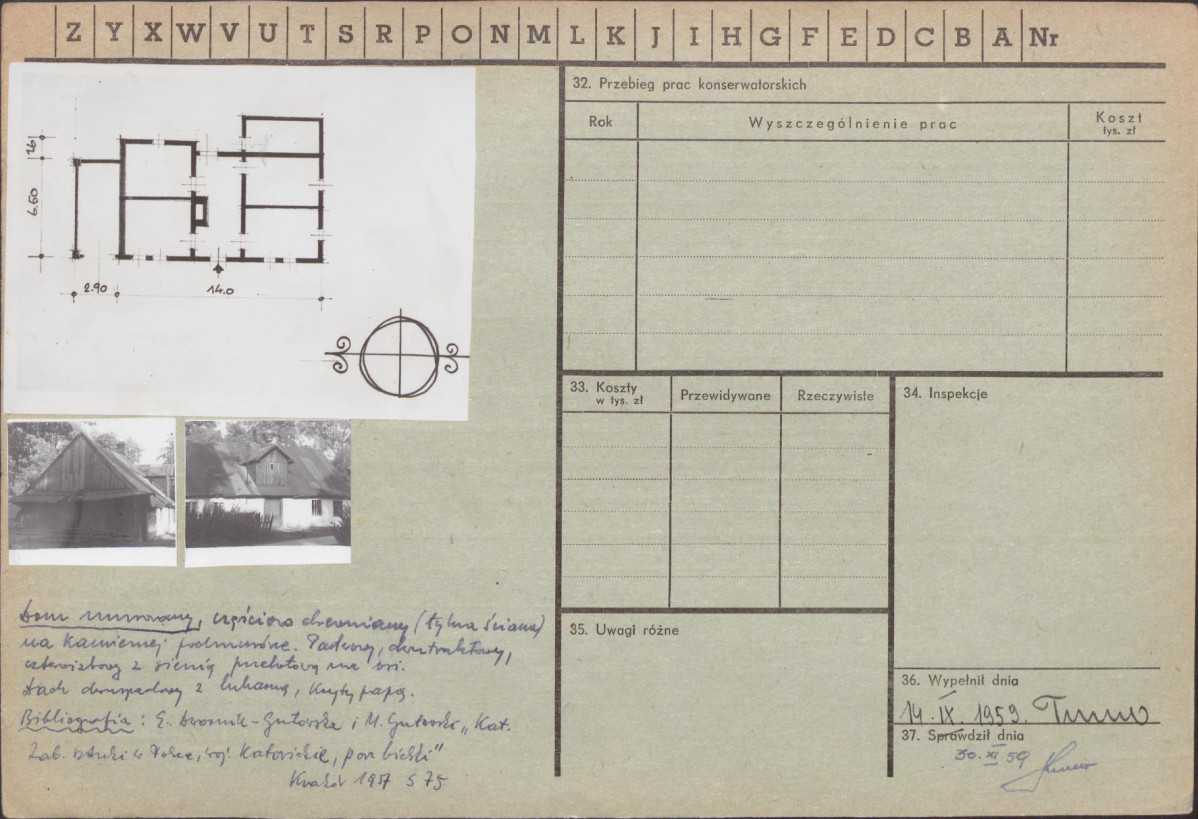 Z Y X W V U T S R P O N M L K J I H G F E D C B A Nr
126
6.50
2.90
14.0
Dom murowany, częściowo drewniany (tylna ściana)
na kamiennej podmurówce. Parterowy, dwutraktowy,
czteroizbowy z sienią przelotową na osi.
Dach dwuspadowy z lukarną, kryty papą.
Bibliografia: E. Dwornik-Gutowska i M. Gutowski „Kat.
Zab. Sztuki w Polsce, woj. Katowickie, pow. bielski"
Kraków 1957 s 75
32. Przebieg prac konserwatorskich
Rok
Wyszczególnienie prac
Koszt
tys. zł
33. Koszty
w tys. zł
Przewidywane
Rzeczywiste
34. Inspekcje
35. Uwagi różne
36. Wypełnił dnia
14.IX.1959.
37. Sprawdził dnia
30. XI 59